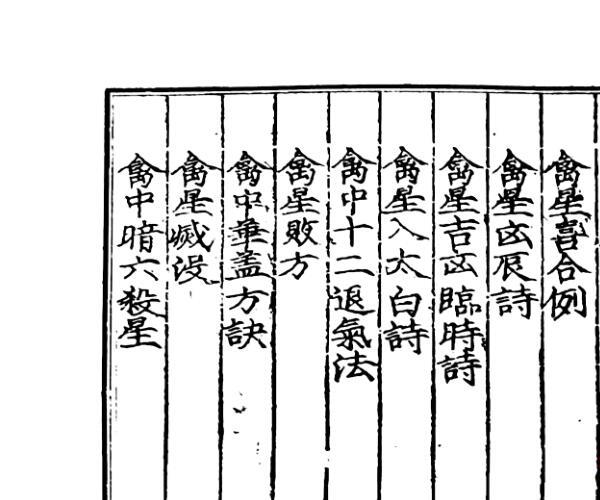 禽星喜合例
禽星凶辰詩
禽星吉凶臨時詩
禽星入太白詩
禽中十二退氣法
禽星敗方
禽中華盖方訣
禽星滅没
禽中暗六殺星